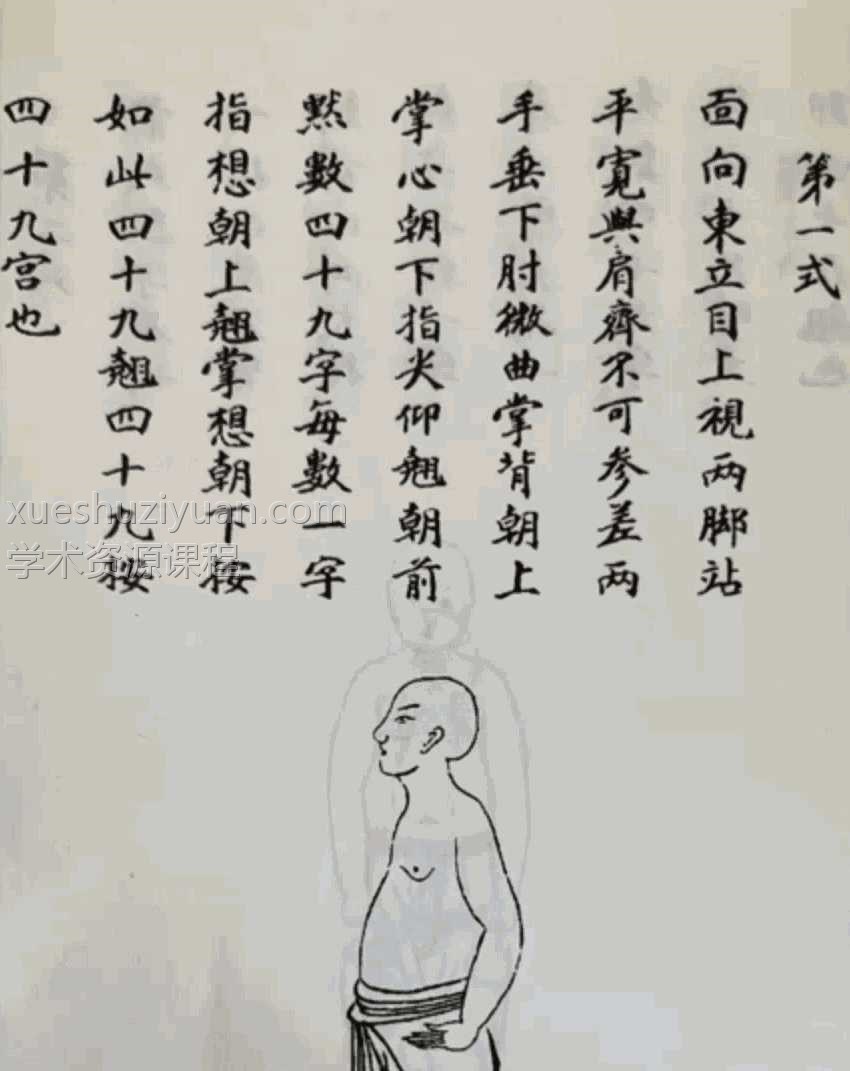 第一式
面向東立目上視两脚站
平寬與肩齊不可参差两
手垂下肘微曲掌背朝上
掌心朝下指尖仰翘朝前
黙數四十九字每數一字
指想朝上翘掌想朝下按
如此四十九翘四十九按
四十九宫也
xueshuziyuan.com
学术资源课程